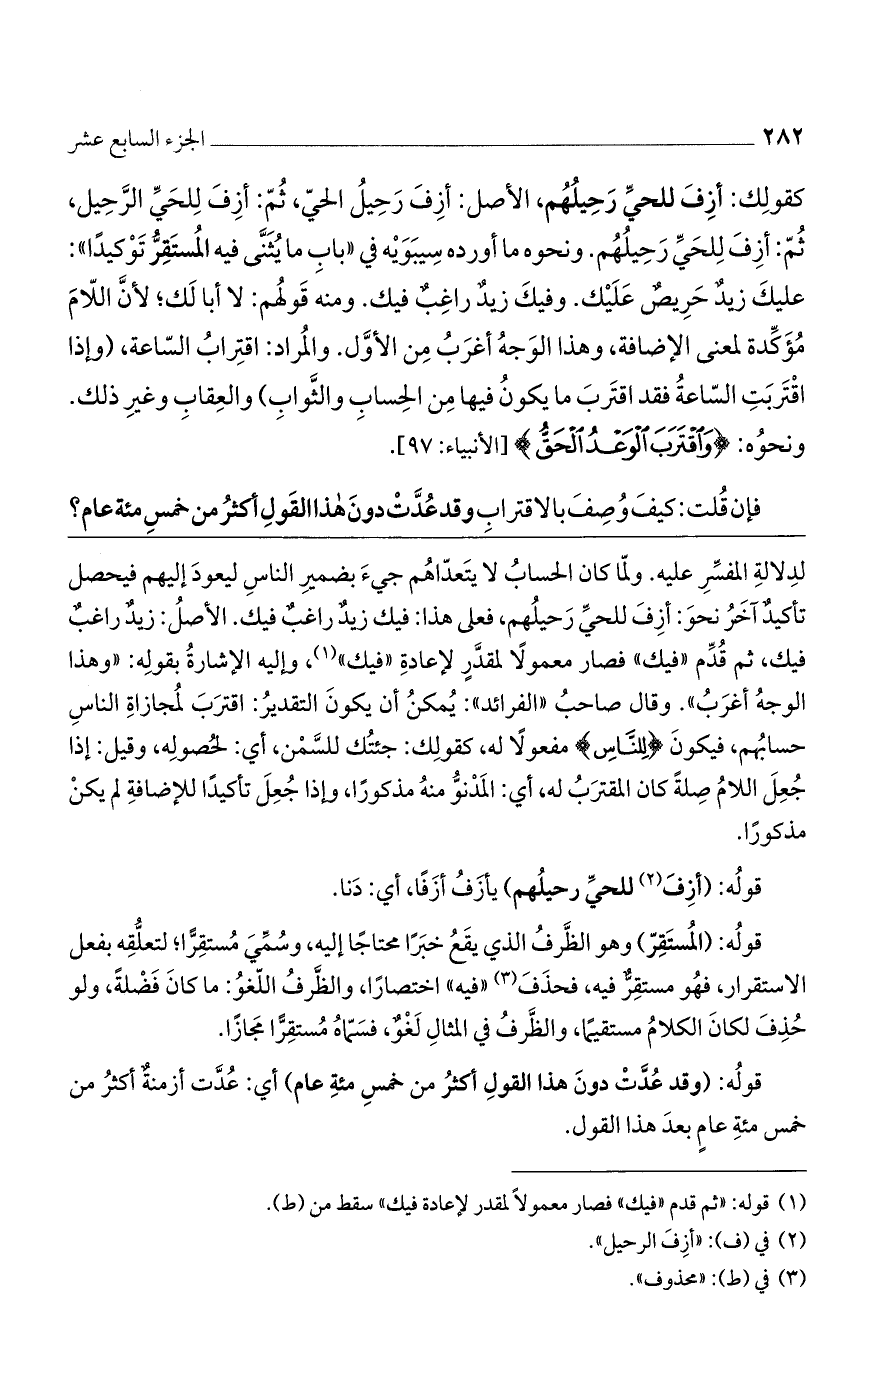 ٢٨٢ ـــــــــــــــــــــ الجزء السابع عشر
كقولِك: أزِفَ للحيِّ رَحِيلُهُم، الأصل: أزِفَ رَحِيلُ الحيّ، ثُمّ: أزِفَ لِلحَيِّ الرَّحِيل،
ثُمّ: أزِفَ لِلحَيِّ رَحِيلُهُم. ونحوه ما أورده سِيبَوَيْه في «بابِ ما يُثَنَّى فيه المُستَقِرُّ تَوْكيدًا»:
عليكَ زيدٌ حَرِيصٌ عَلَيْك. وفيكَ زيدٌ راغِبٌ فيك. ومنه قَولُهُم: لا أبا لَك؛ لأنَّ اللّامَ
مُؤَكِّدة لمعنى الإضافة، وهذا الوَجهُ أغرَبُ مِن الأوَّل. والمُراد: اقتِرابُ السّاعة، (وإذا
اقْتَرَبَتِ السّاعةُ فقد اقتَربَ ما يكونُ فيها مِن الحِسابِ والثَّوابِ) والعِقابِ وغيرِ ذلك.
ونحوُه: ﴿وَٱقْتَرَبَ ٱلْوَعْدُ ٱلْحَقُّ﴾ [الأنبياء: ٩٧].
فإن قُلت: كيفَ وُصِفَ بالاقترابِ وقد عُدَّتْ دونَ هٰذا القَولِ أكثرُ من خمسِ مئة عام؟
لدِلالةِ المفسِّرِ عليه. ولمّا كان الحسابُ لا يتَعدّاهُم جيءَ بضميرِ الناسِ ليعودَ إليهم فيحصل
تأكيدٌ آخَرُ نحوَ: أزِفَ للحيِّ رَحيلُهم، فعلى هذا: فيك زيدٌ راغبٌ فيك. الأصلُ: زيدٌ راغبٌ
فيك، ثم قُدِّم «فيك» فصار معمولًا لمقدَّرٍ لإعادةِ «فيك»(١)، وإليه الإشارةُ بقولِه: «وهذا
الوجهُ أغرَبُ». وقال صاحبُ «الفرائد»: يُمكنُ أن يكونَ التقديرُ: اقترَبَ لمُجازاةِ الناسِ
حسابُهم، فيكونَ ﴿لِلنَّاسِ﴾ مفعولًا له، كقولِك: جئتُك للسَّمْن، أي: لحُصولِه، وقيل: إذا
جُعِلَ اللامُ صِلةً كان المقترَبُ له، أي: المَدْنوُّ منهُ مذكورًا، وإذا جُعِلَ تأكيدًا للإضافةِ لم يكنْ
مذكورًا.
قولُه: (أزِفَ(٢) للحيِّ رحيلُهم) يأزَفُ أزَفًا، أي: دَنا.
قولُه: (المُستَقِرّ) وهو الظَّرفُ الذي يقَعُ خبَرًا محتاجًا إليه، وسُمِّيَ مُستقِرًّا؛ لتعلُّقِه بفعل
الاستقرار، فهُو مستقِرٌّ فيه، فحذَفَ(٣) «فيه» اختصارًا، والظَّرفُ اللّغوُ: ما كانَ فَضْلةً، ولو
حُذِفَ لكانَ الكلامُ مستقيمًا، والظَّرفُ في المثالِ لَغْوٌ، فسَمّاهُ مُستقِرًّا مَجازًا.
قولُه: (وقد عُدَّتْ دونَ هذا القولِ أكثرُ من خمسِ مئةِ عام) أي: عُدَّت أزمنةٌ أكثرُ من
خمس مئةِ عامٍ بعدَ هذا القول.
(١) قوله: «ثم قدم «فيك» فصار معمولاً لمقدر لإعادة فيك» سقط من (ط).
(٢) في (ف): «أزِفَ الرحيل».
(٣) في (ط): «محذوف».